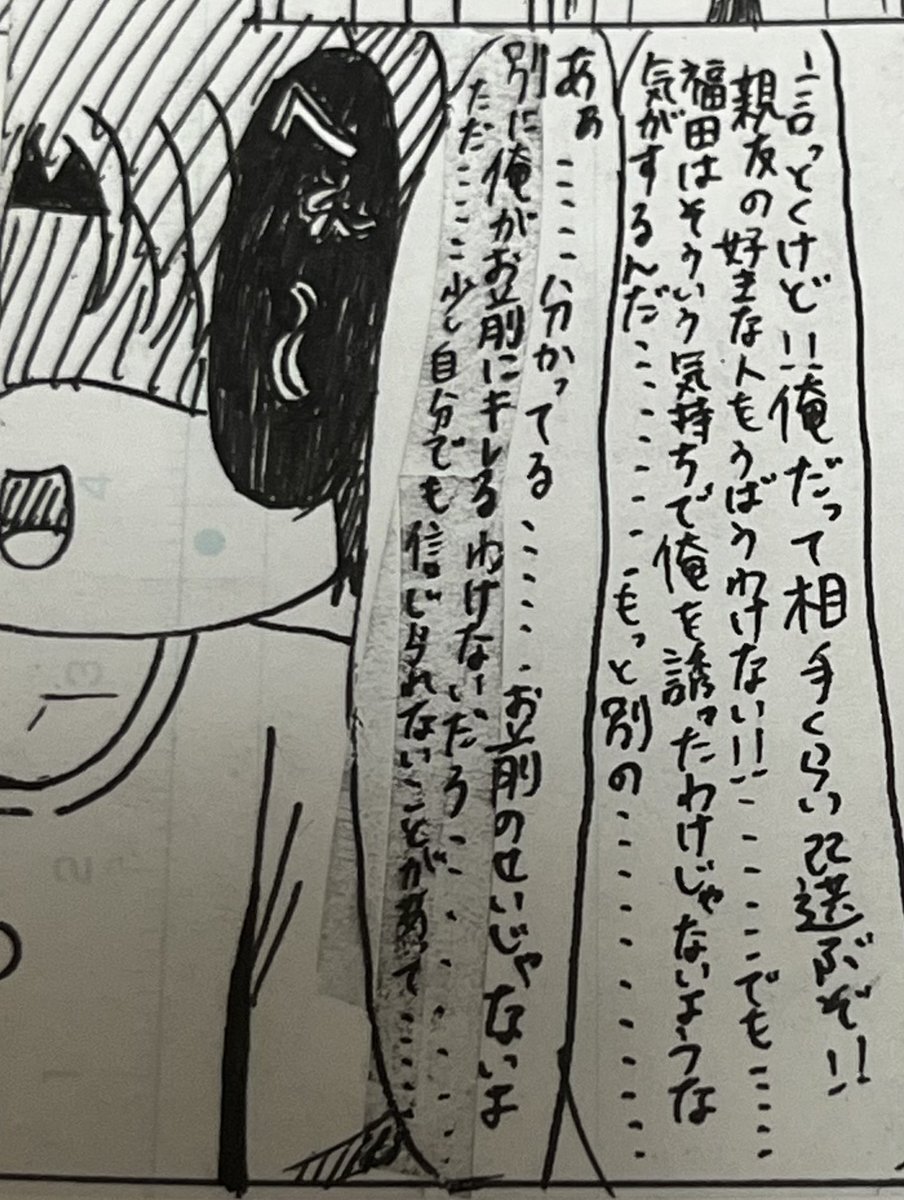 言っとくけど!!俺だって相手くらい選ぶぞ!!
親友の好きな人もうばうわけない!!………でも……
福田はそういう気持ちで俺を誘ったわけじゃないような
気がするんだ…………もっと別の……………
あぁ………分かってる………お前のせいじゃないよ
別に俺がお前にキレるわけないだろ………
ただ……少し自分でも信じられないことがあって……